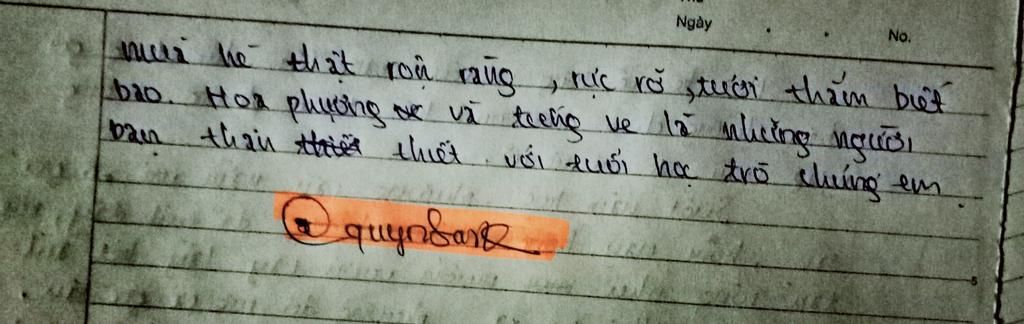 Ngày . . No.
mùa hè thật rộn ràng, rực rỡ, tươi thắm biết
bao. Hoa phượng và tiếng ve là những người
bạn thân thiết với tuổi học trò chúng em.